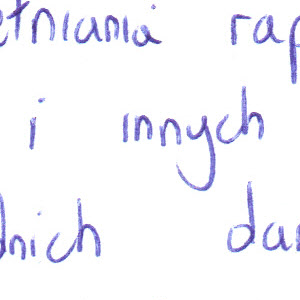 etniania rap
i innych
dnich dan